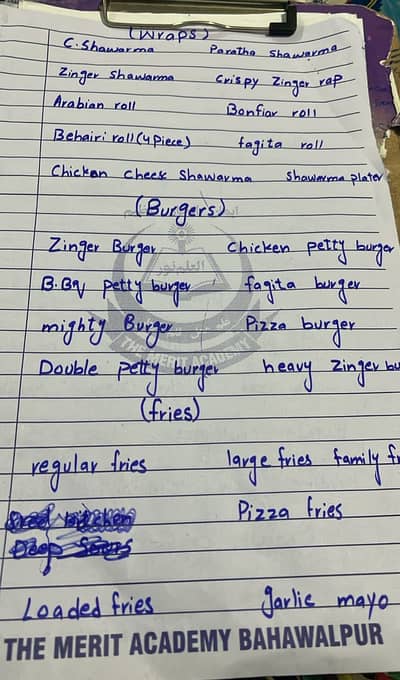 (Wraps)
C. Shawarma Paratha Shawarma
Zinger Shawarma Crispy Zinger rap
Arabian roll Bonfiar roll
Behairi roll (4 Piece) fagita roll
Chicken Cheek Shawarma Shawarma plater
(Burgers)
Zinger Burger Chicken petty burger
B.BQ petty burger fagita burger
mighty Burger Pizza burger
Double petty burger heavy Zinger bu
(fries)
regular fries large fries family f
Pizza fries
Loaded fries garlic mayo
العلم نور
THE MERIT ACADEMY
THE MERIT ACADEMY BAHAWALPUR